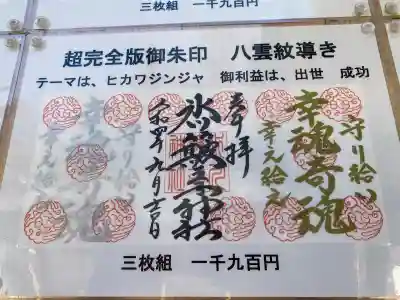 三枚組　一千九百円
超完全版御朱印　八雲紋導き
テーマは、ヒカワジンジャ　御利益は、出世　成功
幸魂奇魂
守り給い
幸え給え
奉拝
氷川鍬神社
守り給い
幸え給え
三枚組　一千九百円